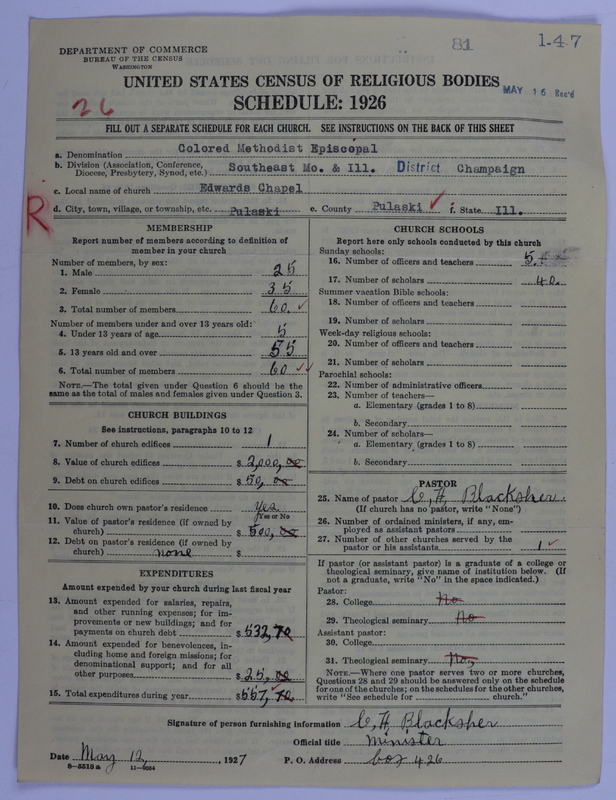 81
1-47
DEPARTMENT OF COMMERCE
BUREAU OF THE CENSUS
WASHINGTON
UNITED STATES CENSUS OF RELIGIOUS BODIES
MAY 16 Rec'd
26
SCHEDULE: 1926
FILL OUT A SEPARATE SCHEDULE FOR EACH CHURCH. SEE INSTRUCTIONS ON THE BACK OF THIS SHEET
a. Denomination Colored Methodist Episcopal
b. Division (Association, Conference, Diocese, Presbytery, Synod, etc.) Southeast Mo. & Ill. District Champaign
c. Local name of church Edwards Chapel
R
d. City, town, village, or township, etc. Pulaski e. County Pulaski ✓ f. State Ill.
MEMBERSHIP
Report number of members according to definition of
member in your church
Number of members, by sex:
1. Male 25
2. Female 35
3. Total number of members 60. ✓
Number of members under and over 13 years old:
4. Under 13 years of age 5
5. 13 years old and over 55
6. Total number of members 60 ✓✓
NOTE.—The total given under Question 6 should be
the same as the total of males and females given under Question 3.
CHURCH BUILDINGS
See instructions, paragraphs 10 to 12
7. Number of church edifices 1
8. Value of church edifices $ 2,000,00
9. Debt on church edifices $ 50,00
10. Does church own pastor's residence Yes
Yes or No
11. Value of pastor's residence (if owned by
church) $ 500,00
12. Debt on pastor's residence (if owned by
church) none $
EXPENDITURES
Amount expended by your church during last fiscal year
13. Amount expended for salaries, repairs,
and other running expenses; for im-
provements or new buildings; and for
payments on church debt $ 532,70
14. Amount expended for benevolences, in-
cluding home and foreign missions; for
denominational support; and for all
other purposes $ 25,00
15. Total expenditures during year $ 557,70
CHURCH SCHOOLS
Report here only schools conducted by this church
Sunday schools:
16. Number of officers and teachers 5.
17. Number of scholars 40.
Summer vacation Bible schools:
18. Number of officers and teachers
19. Number of scholars
Week-day religious schools:
20. Number of officers and teachers
21. Number of scholars
Parochial schools:
22. Number of administrative officers
23. Number of teachers—
a. Elementary (grades 1 to 8)
b. Secondary
24. Number of scholars—
a. Elementary (grades 1 to 8)
b. Secondary
PASTOR
25. Name of pastor C, H, Blacksher
(If church has no pastor, write "None")
26. Number of ordained ministers, if any, em-
ployed as assistant pastors
27. Number of other churches served by the
pastor or his assistants 1 ✓
If pastor (or assistant pastor) is a graduate of a college or
theological seminary, give name of institution below. (If
not a graduate, write "No" in the space indicated.)
Pastor:
28. College No
29. Theological seminary No
Assistant pastor:
30. College
31. Theological seminary No,
NOTE.—Where one pastor serves two or more churches,
Questions 28 and 29 should be answered only on the schedule
for one of the churches; on the schedules for the other churches,
write "See schedule for church."
Signature of person furnishing information C, H Blacksher
Official title minister
Date May 12, , 1927 P. O. Address box 426
8—5518a 11—9034